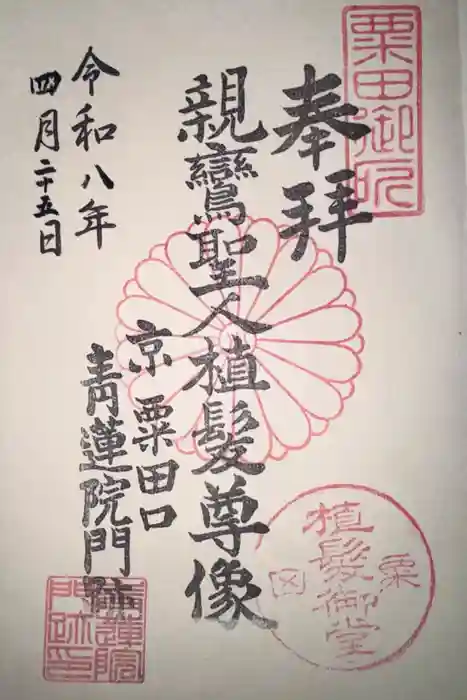 粟田御所
奉拝
親鸞聖人植髪尊像
京 粟田口
青蓮院門跡
令和八年
四月二十五日
植髪御堂
粟
青蓮院
門跡印